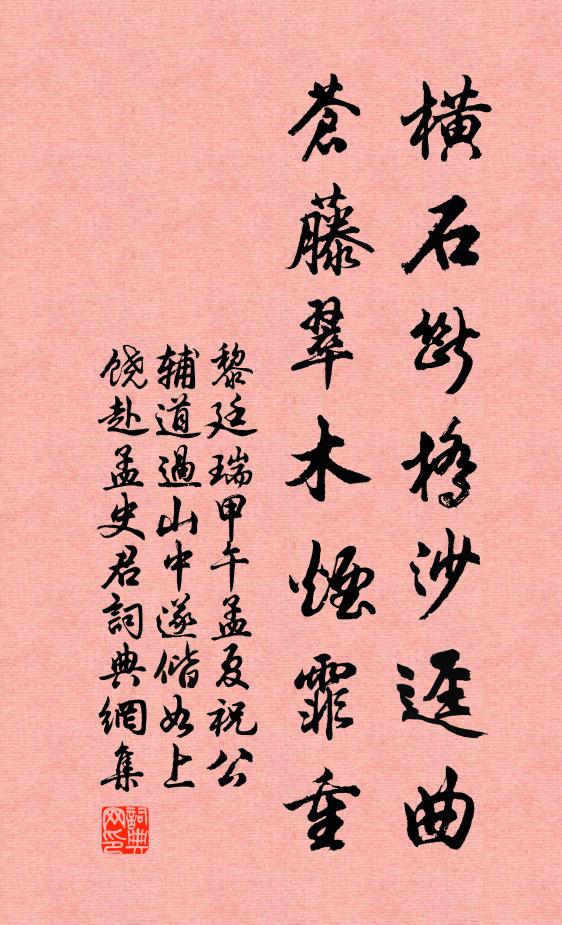 橫石斷橋沙逕曲
蒼藤翠木煙霏重
黎廷瑞甲午孟夏祝公
辅道過山中遂偕如上
饶赴孟史君詞典網集
詞典网印